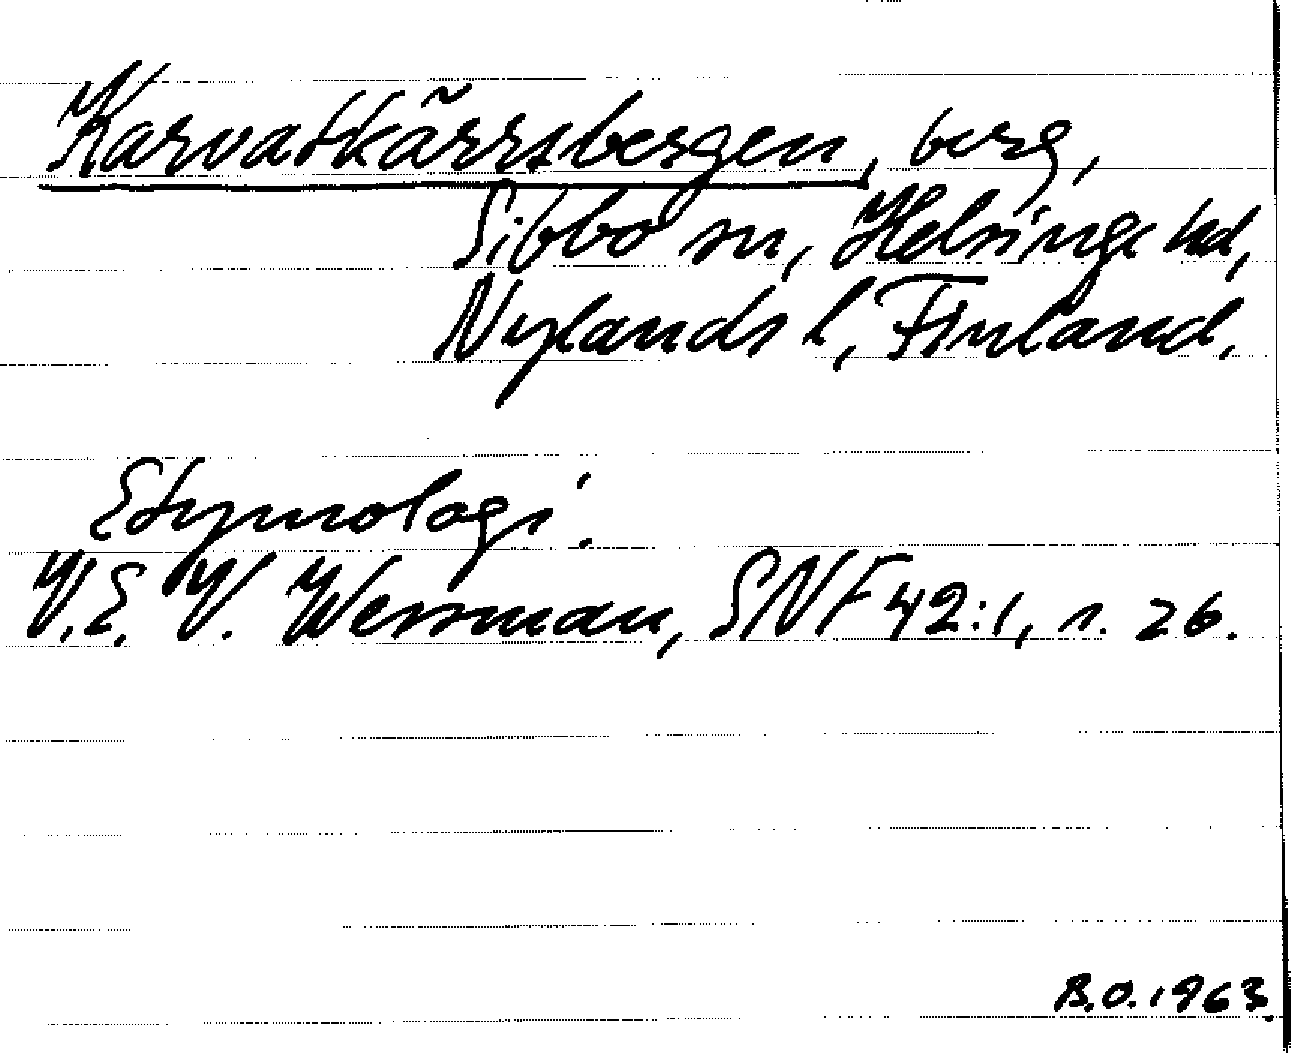 Karvatkärrsbergen, berg,
Sibbo sn, Helsinge hd,
Nylands l, Finland.
Etymologi.
V.E.V. Wessman, SNF 42:1, s. 26.
B.O. 1963.